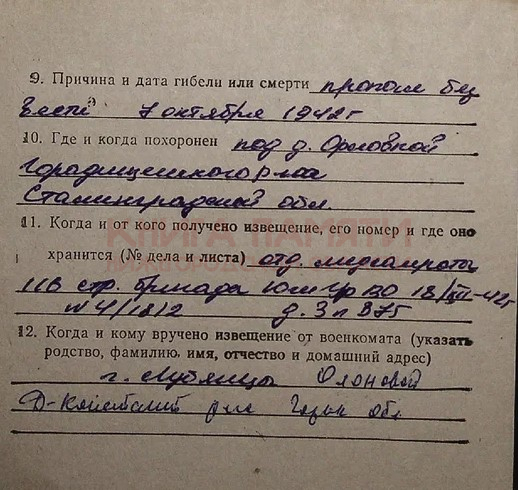 9. Причина и дата гибели или смерти пропал без
вести 7 октября 1942 г
10. Где и когда похоронен под д. Орловкой
Городищенского р-на
Сталинградской обл
КНИГА ПАМЯТИ
11. Когда и от кого получено извещение, его номер и где оно
хранится (№ дела и листа) отд.
стр. бригада 18/XII-42г
N 4/1812 д. 3 л 875
12. Когда и кому вручено извещение от военкомата (указать
родство, фамилию, имя, отчество и домашний адрес)
Д-Констант рна Горьк обл